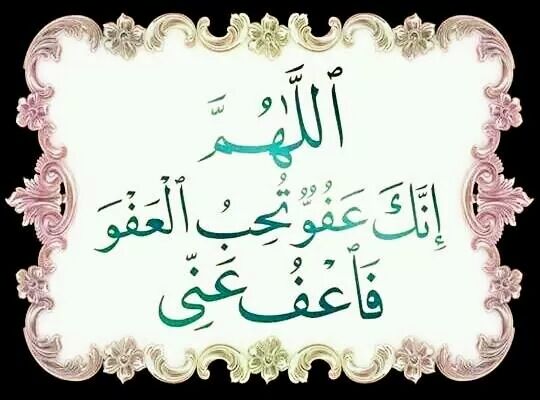 ٱللَّهُمَّ
إِنَّكَ عَفُوٌّ تُحِبُ ٱلْعَفْوَ
فَٱعْفُ عَنِّى